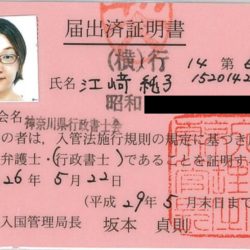 届出済証明書
(横)行 14 第6
氏名 江﨑 純子 15201420
昭和
会名 神奈川県行政書士会
の者は、入管法施行規則の規定に基づき
弁護士・行政書士)であることを証明す
26年5月22日
(平成29年5月末日まで
入国管理局長 坂本 貞則